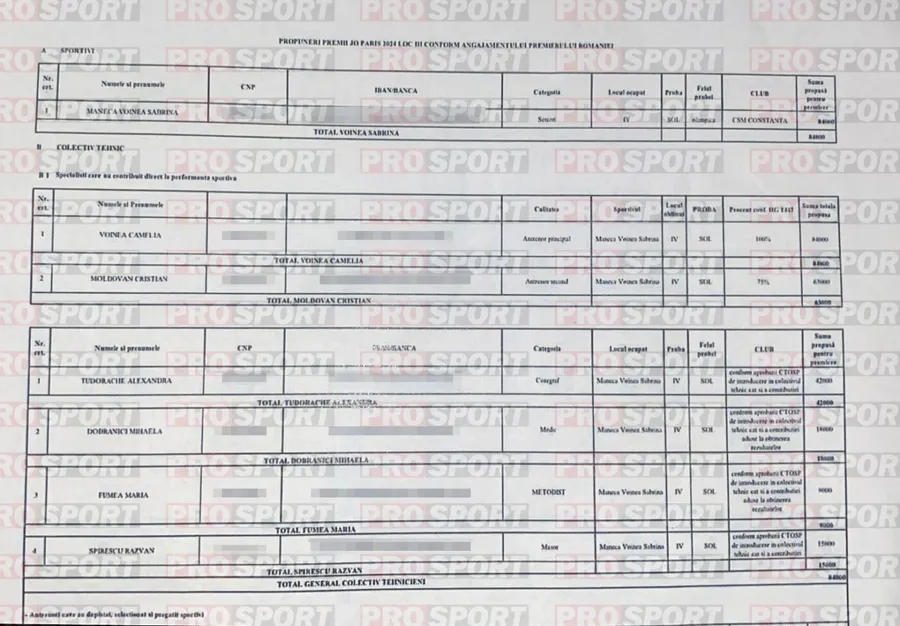 PROPUNERI PREMII JO PARIS 2024 LOC III CONFORM ANGAJAMENTULUI PREMIERULUI ROMANIEI
A SPORTIVI
Nr. crt. Numele si prenumele CNP IBAN/BANCA Categoria Locul ocupat Proba Felul probei CLUB Suma propusă pentru premiere
1 MANECA VOINEA SABRINA Senori IV SOL olimpica CSM CONSTANTA 84000
TOTAL VOINEA SABRINA 84000
B COLECTIV TEHNIC
B 1 Specialisti care au contribuit direct la performanta sportiva
Nr. crt. Numele si Prenumele Calitatea Sportivul Locul obtinut PROBA Procent conf. HG 1447 Suma totala propusa
1 VOINEA CAMELIA Antrenor principal Maneca Voinea Sabrina IV SOL 100% 84000
TOTAL VOINEA CAMELIA 84000
2 MOLDOVAN CRISTIAN Antrenor secund Maneca Voinea Sabrina IV SOL 75% 63000
TOTAL MOLDOVAN CRISTIAN 63000
Nr. crt. Numele si prenumele CNP IBAN/BANCA Categoria Locul ocupat Proba Felul probei CLUB Suma propusă pentru premiere
1 TUDORACHE ALEXANDRA Coregraf Maneca Voinea Sabrina IV SOL conform aprobarii CTOSP de introducere in colectivul tehnic cat si a contributiei 42000
TOTAL TUDORACHE ALEXANDRA 42000
2 DOBRANICI MIHAELA Medic Maneca Voinea Sabrina IV SOL conform aprobarii CTOSP de introducere in colectivul tehnic cat si a contributiei aduse la obtinerea rezultatelor 18000
TOTAL DOBRANICI MIHAELA 18000
3 FUMEA MARIA METODIST Maneca Voinea Sabrina IV SOL conform aprobarii CTOSP de introducere in colectivul tehnic cat si a contributiei aduse la obtinerea rezultatelor 9000
TOTAL FUMEA MARIA 9000
4 SPIRESCU RAZVAN Masor Maneca Voinea Sabrina IV SOL conform aprobarii CTOSP de introducere in colectivul tehnic cat si a contributiei 15000
TOTAL SPIRESCU RAZVAN 15000
TOTAL GENERAL COLECTIV TEHNICIENI 84000
- Antrenori care au depistat, selectionat si pregatit sportivi
PROSPORT